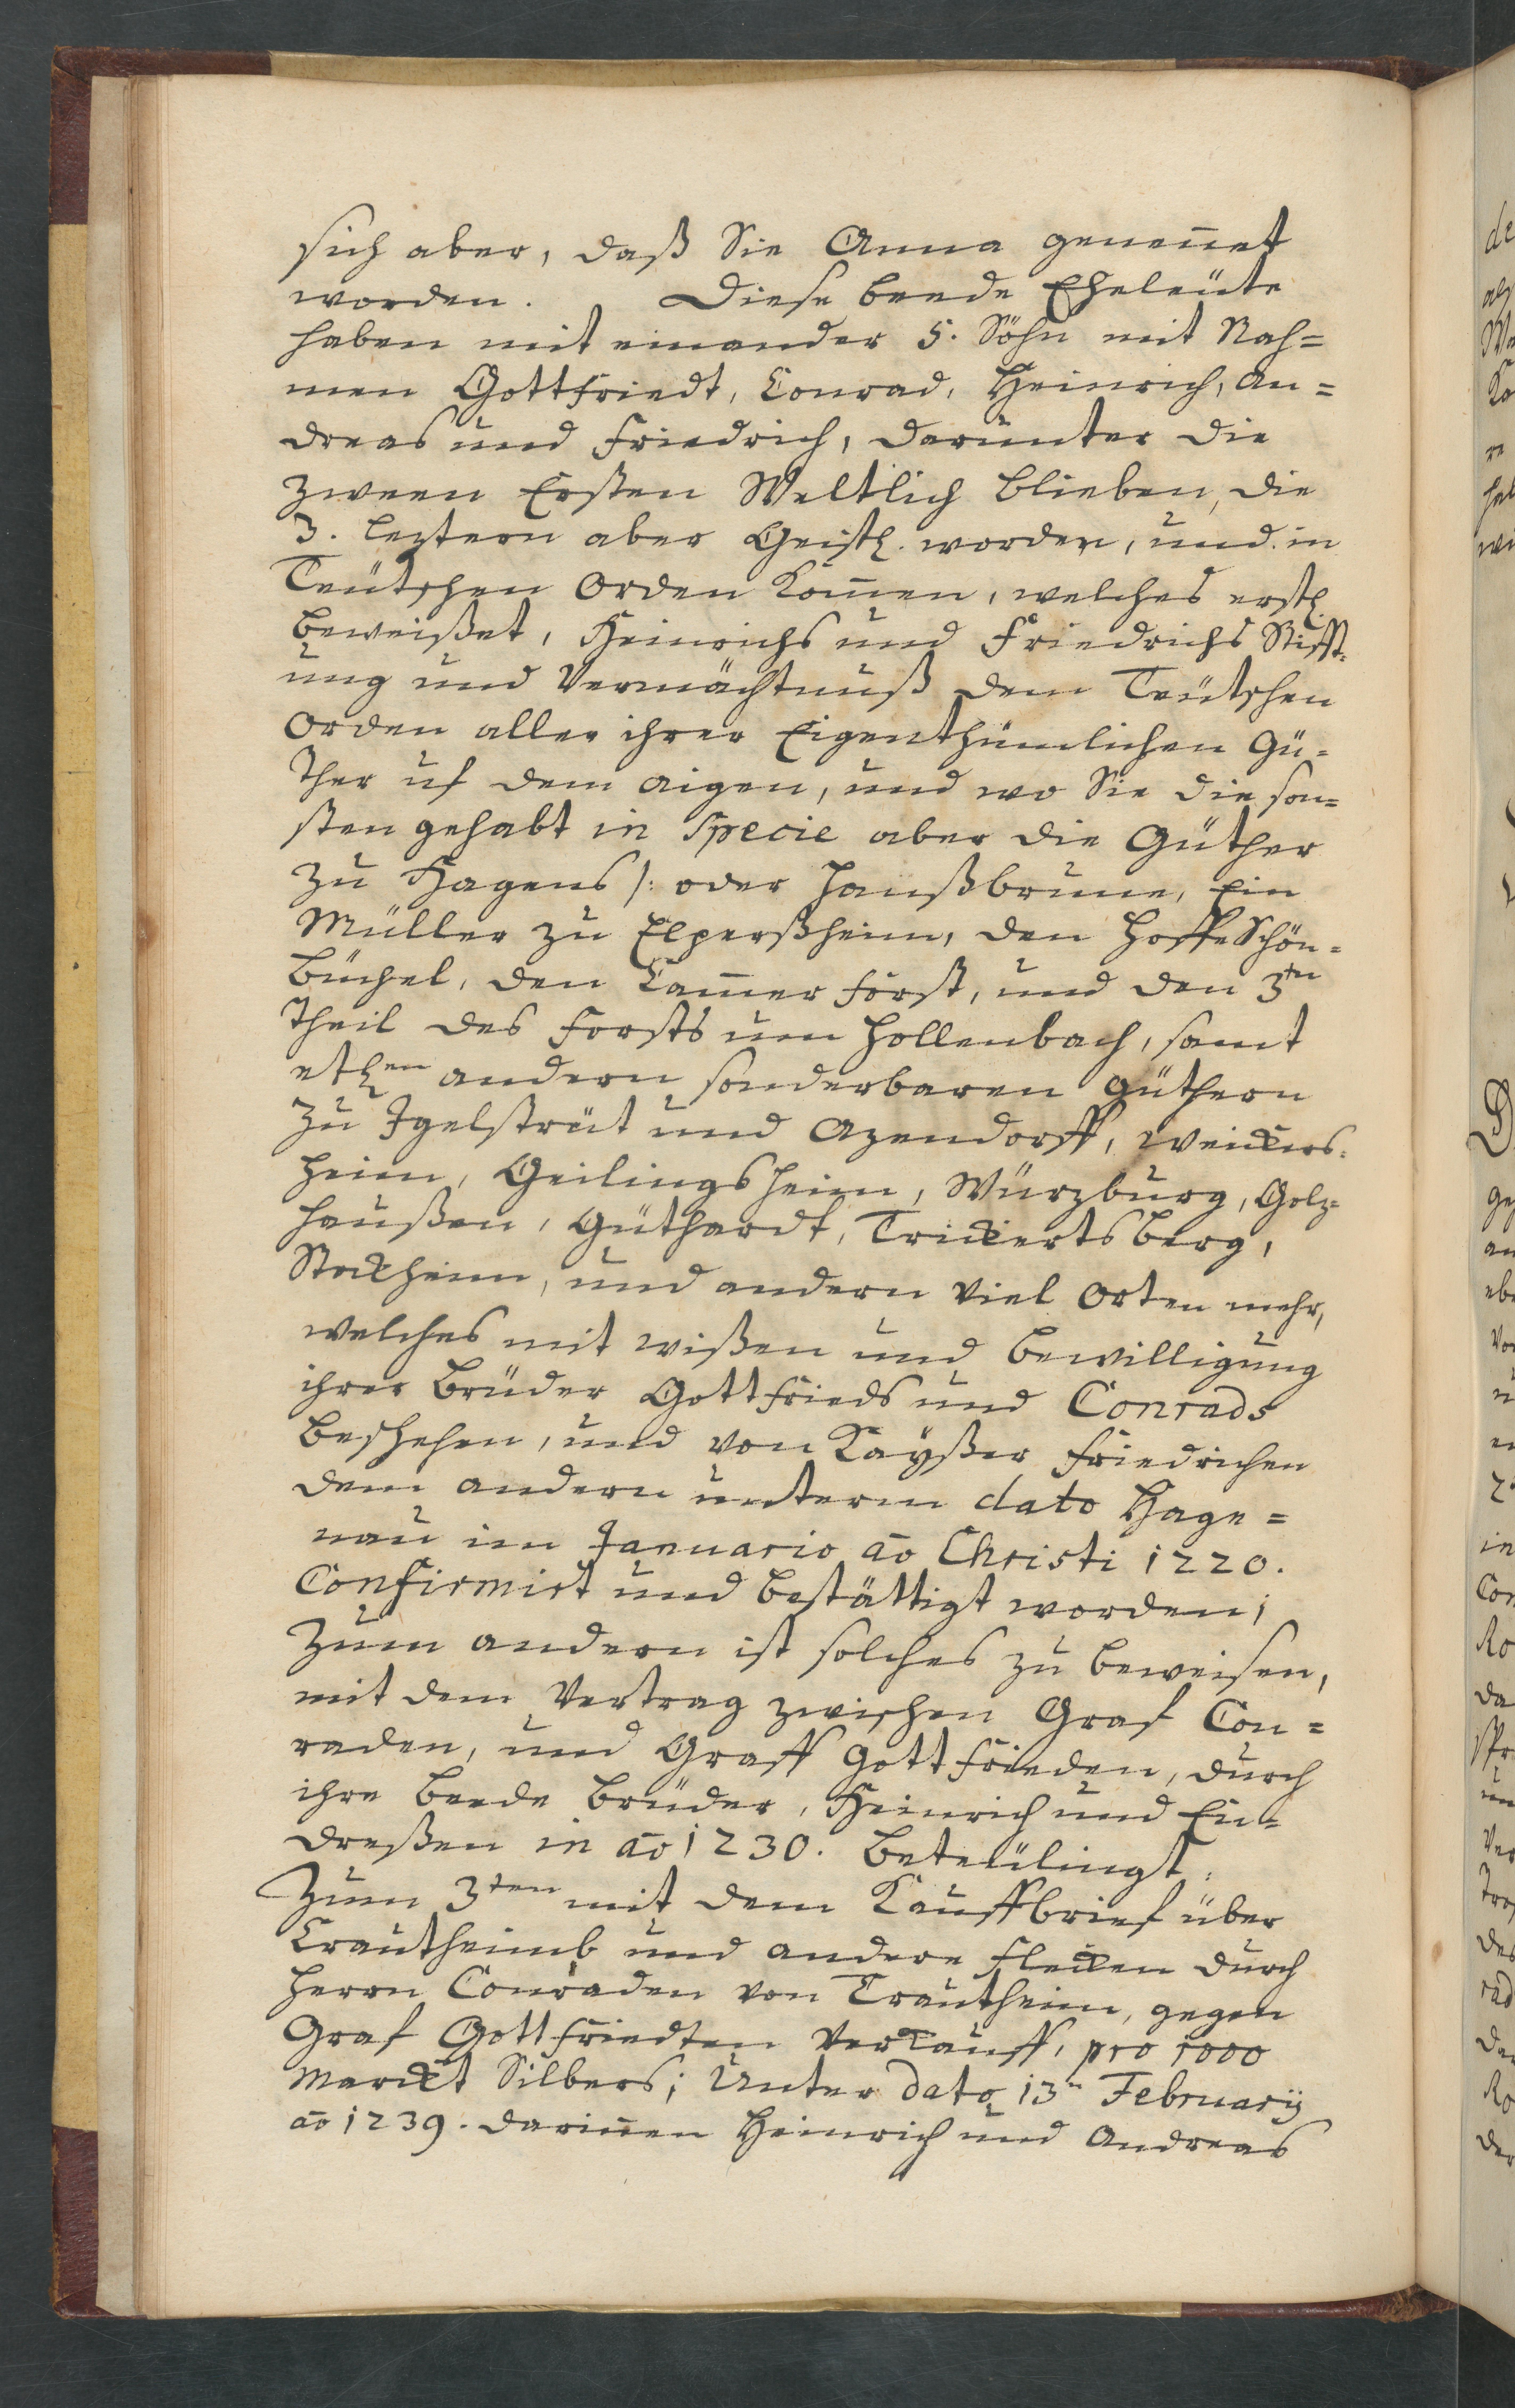 sich aber, daß Sie Anna genennet
worden. Diese beede Eheleüte
haben mit einander 5. Söhn mit Nah=
men Gottfriedt, Conrad, Heinrich, An=
dreas und Friedrich, darunter die
zween Ersten Weltlich blieben, die
3. leztern aber Geistl. worden, und in
Teütschen Orden kom̄en, welches erstl.
beweißet, Heinrichs und Friedrichs Stifft=
ung und Vermächtnuß dem Teütschen
Orden aller ihrer Eigenthümlichen Gü=
ther uf dem aigen, und wo Sie die son=
sten gehabt in Specie aber die Güther
zu Hagens /: oder Hanßbrunn, Ein
Müller zu Elperßheim, den Hoff Schön=
büchel, den Cam̄er forst, und den 3ten
Theil des Forsts um Hollenbach, samt
etlen andern sonderbaren Güthern
zu Igelstrüt und Azendorff, Weickers=
heim, Geilingsheim, Würzburg, Holz=
haußen, Güthardt, Trickertsberg,
Stockheim, und andern viel Orten mehr,
welches mit wißen und bewilligung
ihrer Brüder Gottfrieds und Conrads
beschehen, und von Kayßer Friedrichen
dem andern unterm dato Hage=
nau im Januario aō Christi 1220.
Confirmirt und bestättigt worden;
Zum andern ist solches zu beweisen,
mit dem Vertrag zwischen Graf Con=
raden, und Graff Gottfrieden, durch
ihre beede Brüder, Heinrich und En=
dreßen in aō 1230. betetülingt.
Zum 3ten mit dem Kauffbrief über
Crautheimb und andere Flecken durch
Herrn Conraden von Crautheim, gegen
Graf Gottfriedten Verkauff, pro 1000
Marckt Silbers; Unter dato 13n Februarij
aō 1239. darin̄en Heinrich und Andreas